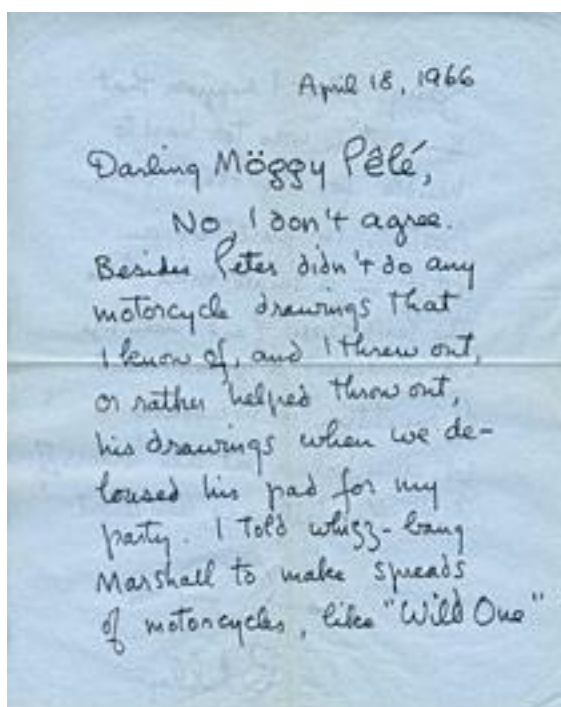 April 18, 1966
Darling Möggy Pêlé,
No, I don't agree.
Besides Peter didn't do any
motorcycle drawings that
I know of, and I threw out,
or rather helped throw out,
his drawings when we de-
loused his pad for my
party. I told whizz-bang
Marshall to make spreads
of motorcycles, like "Wild One"